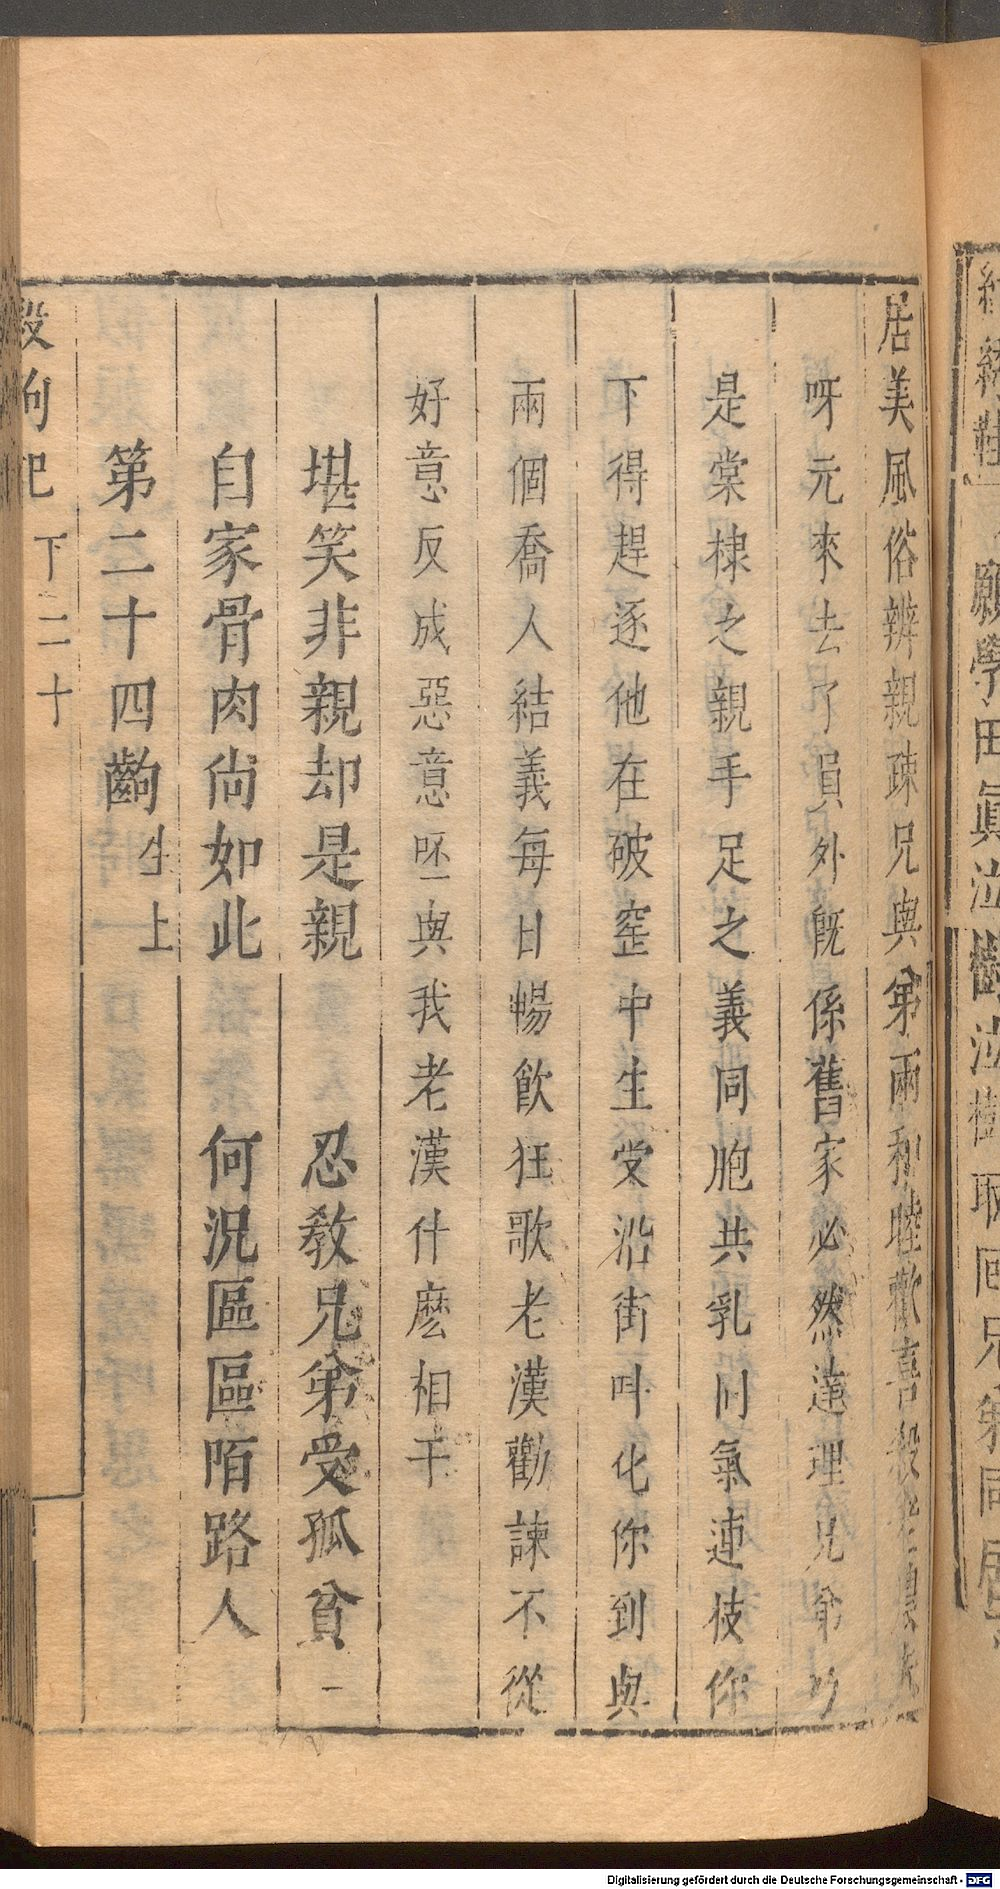 繡鞋】願學田眞泣樹泣樹取回兄弟同居
居美風俗辨親疎兄與弟兩和睦歡喜殺
呀元來去了員外旣係舊家必然達理兄弟乃
是棠棣之親手足之義同胞共乳同氣連枝你
下得趕逐他在破窰中生受沿街叫化你到與
兩個喬人結義每日暢飮狂歌老漢勸諫不從
好意反成惡意呸與我老漢什麽相干
堪笑非親却是親　忍敎兄弟受孤貧
自家骨肉尙如此　何況區區陌路人
第二十四齣 生上
殺狗記 下二十
Digitalisierung gefördert durch die Deutsche Forschungsgemeinschaft - DFG